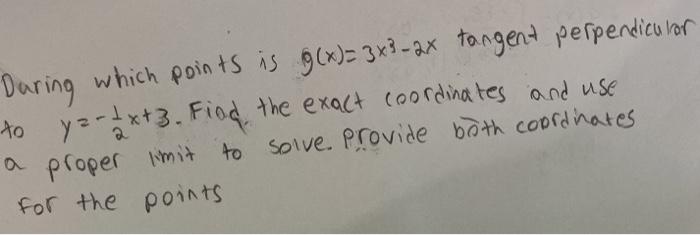 During which points is g(x)=3x³-2x tangent perpendicular
to y=-½x+3. Find the exact coordinates and use
a proper limit to solve. Provide both coordinates
for the points